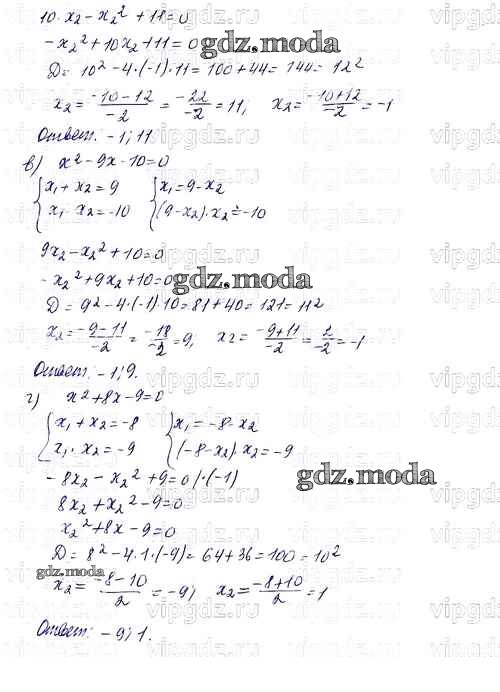 10·x₂ - x₂² + 11 = 0
-x₂² + 10x₂ + 11 = 0
gdz.moda
D = 10² - 4·(-1)·11 = 100 + 44 = 144 = 12²
x₂ = (-10-12)/(-2) = (-22)/(-2) = 11, x₂ = (-10+12)/(-2) = -1
Ответ: -1; 11
в) x² - 9x - 10 = 0
{ x₁ + x₂ = 9 { x₁ = 9 - x₂
x₁ · x₂ = -10 (9 - x₂)·x₂ = -10
9x₂ - x₂² + 10 = 0
-x₂² + 9x₂ + 10 = 0
gdz.moda
D = 9² - 4·(-1)·10 = 81 + 40 = 121 = 11²
x₂ = (-9-11)/(-2) = (-18)/(-2) = 9, x₂ = (-9+11)/(-2) = 2/(-2) = -1
Ответ: -1; 9.
г) x² + 8x - 9 = 0
{ x₁ + x₂ = -8 { x₁ = -8 - x₂
x₁ · x₂ = -9 (-8 - x₂)·x₂ = -9
-8x₂ - x₂² + 9 = 0 |·(-1)
gdz.moda
8x₂ + x₂² - 9 = 0
x₂² + 8x - 9 = 0
D = 8² - 4·1·(-9) = 64 + 36 = 100 = 10²
gdz.moda
x₂ = (-8-10)/2 = -9; x₂ = (-8+10)/2 = 1
Ответ: -9; 1.
vipgdz.ru